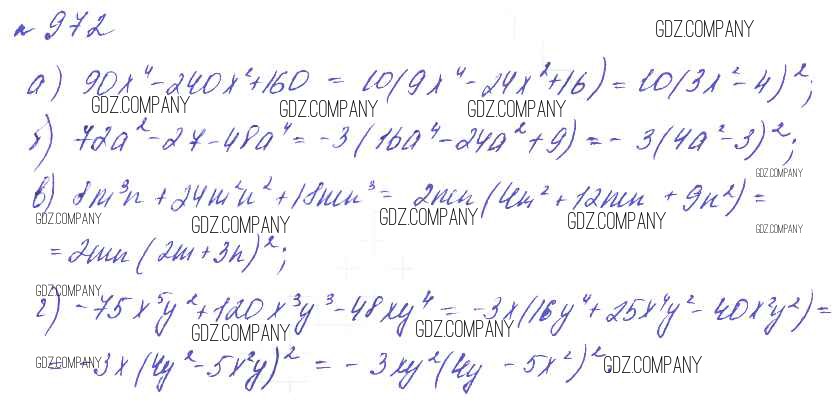 № 972
GDZ.COMPANY
а) 90x⁴ - 240x² + 160 = 10(9x⁴ - 24x² + 16) = 10(3x² - 4)²;
GDZ.COMPANY GDZ.COMPANY GDZ.COMPANY
б) 72a² - 27 - 48a⁴ = -3(16a⁴ - 24a² + 9) = -3(4a² - 3)²;
GDZ.COMPANY
в) 8m³n + 24m²n² + 18mn³ = 2mn(4m² + 12mn + 9n²) =
GDZ.COMPANY GDZ.COMPANY GDZ.COMPANY GDZ.COMPANY GDZ.COMPANY
= 2mn(2m + 3n)²;
GDZ.COMPANY
г) -75x⁵y² + 120x³y³ - 48xy⁴ = -3x(16y⁴ + 25x⁴y² - 40x²y²) =
GDZ.COMPANY GDZ.COMPANY
= -3x(4y² - 5x²y)² = -3xy²(4y - 5x²)².
GDZ.COMPANY GDZ.COMPANY